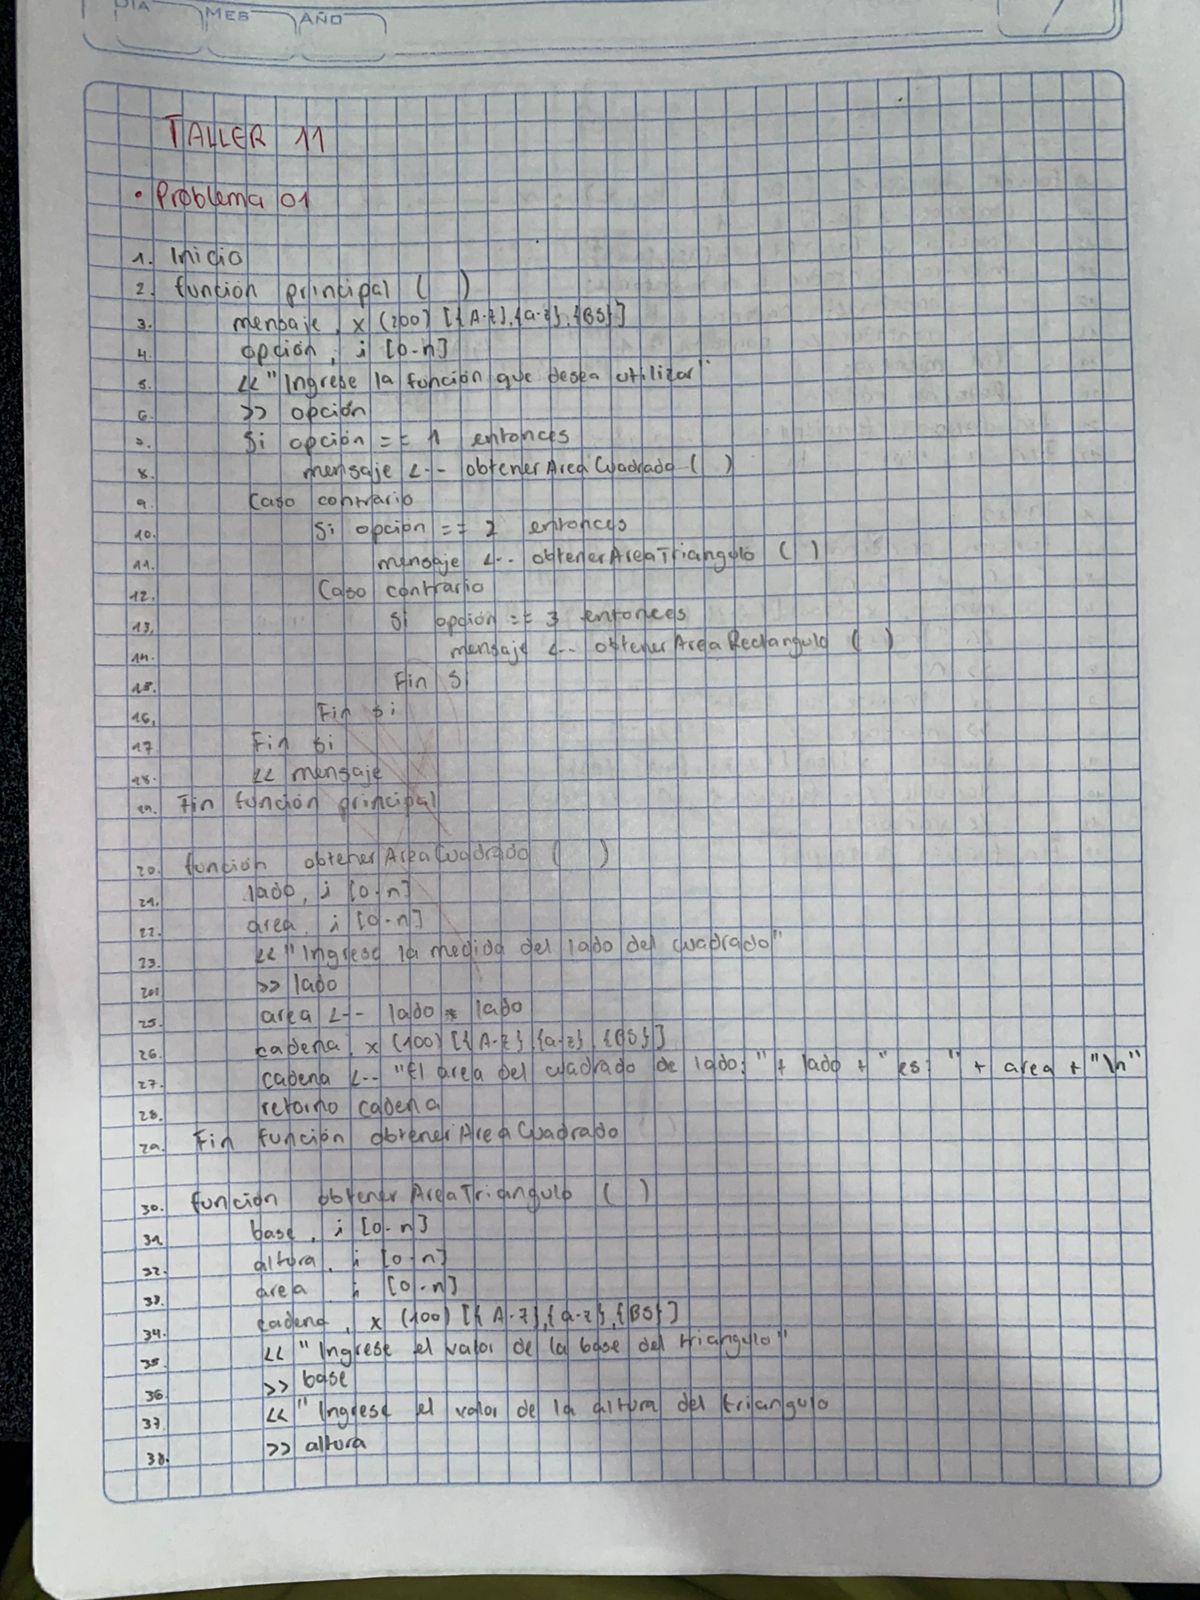 DIA MES AÑO
TALLER 11
• Problema 01
1. Inicio
2. función principal ( )
3. mensaje, x (200) [{A-z},{a-z},{BS}]
4. opción, i [0-n]
5. << "Ingrese la función que desea utilizar"
6. >> opción
7. Si opción == 1 entonces
8. mensaje <-- obtenerAreaCuadrado ( )
9. Caso contrario
10. Si opción == 2 entonces
11. mensaje <-- obtenerAreaTriangulo ( )
12. Caso contrario
13. Si opción == 3 entonces
14. mensaje <-- obtenerAreaRectangulo ( )
15. Fin Si
16. Fin si
17 Fin si
18. << mensaje
19. Fin función principal
20. función obtenerAreaCuadrado ( )
21. lado, i [0-n]
22. area, i [0-n]
23. << "Ingrese la medida del lado del cuadrado"
24 >> lado
25. area <-- lado * lado
26. cadena, x (100) [{A-z},{a-z},{BS}]
27. cadena <-- "El area del cuadrado de lado: " + lado + "es: " + area + "\n"
28. retorno cadena
29. Fin función obtenerAreaCuadrado
30. función obtenerAreaTriangulo ( )
31 base, i [0-n]
32. altura, i [0-n]
33. area, i [0-n]
34. cadena, x (100) [{A-z},{a-z},{BS}]
35 << "Ingrese el valor de la base del triangulo"
36 >> base
37. << "Ingrese el valor de la altura del triangulo
38. >> altura